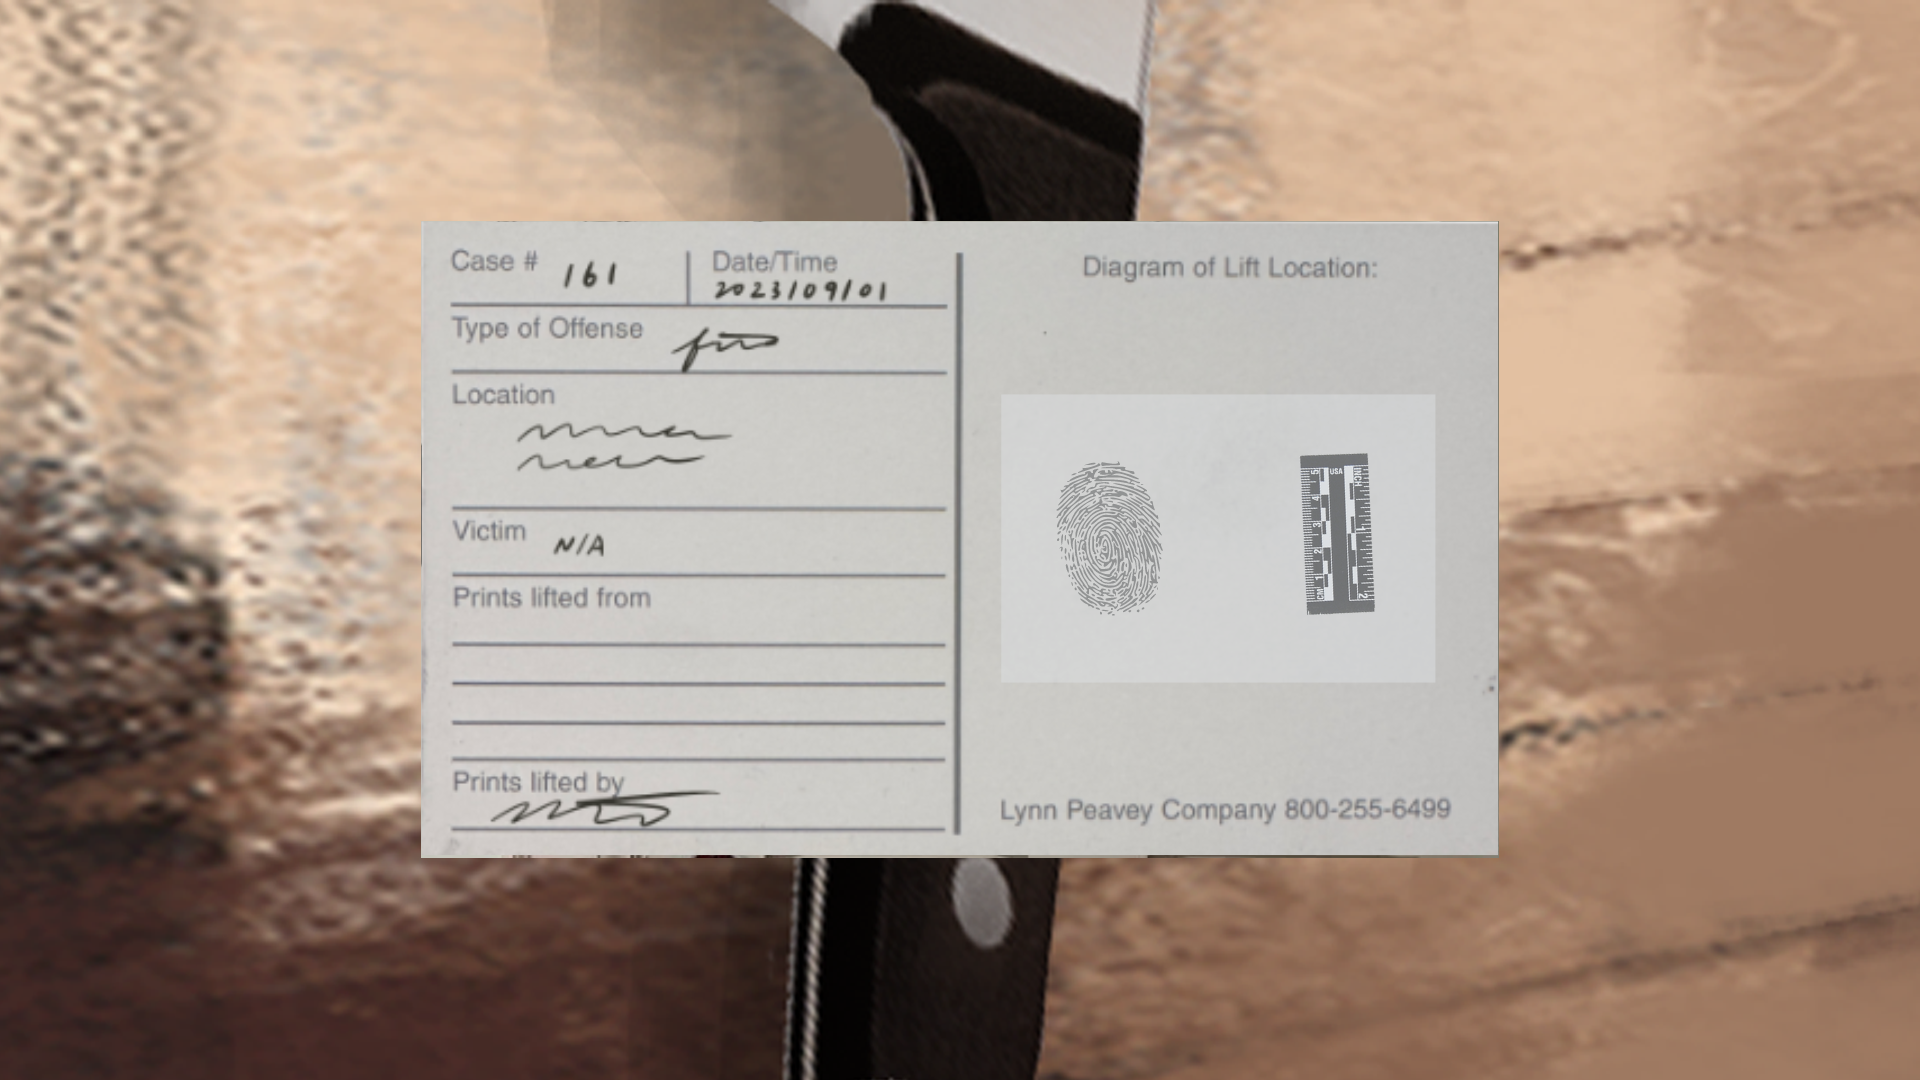 Case # 161
Date/Time
2023/09/01
Type of Offense
Location
Victim N/A
Prints lifted from
Prints lifted by
Diagram of Lift Location:
USA
INCH
5
4
3
2
1
CM
1
2
Lynn Peavey Company 800-255-6499